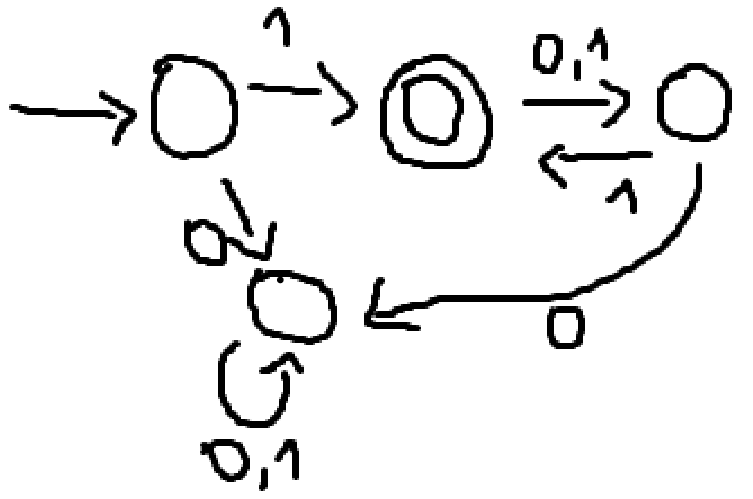 1
0,1
1
0
0
0,1